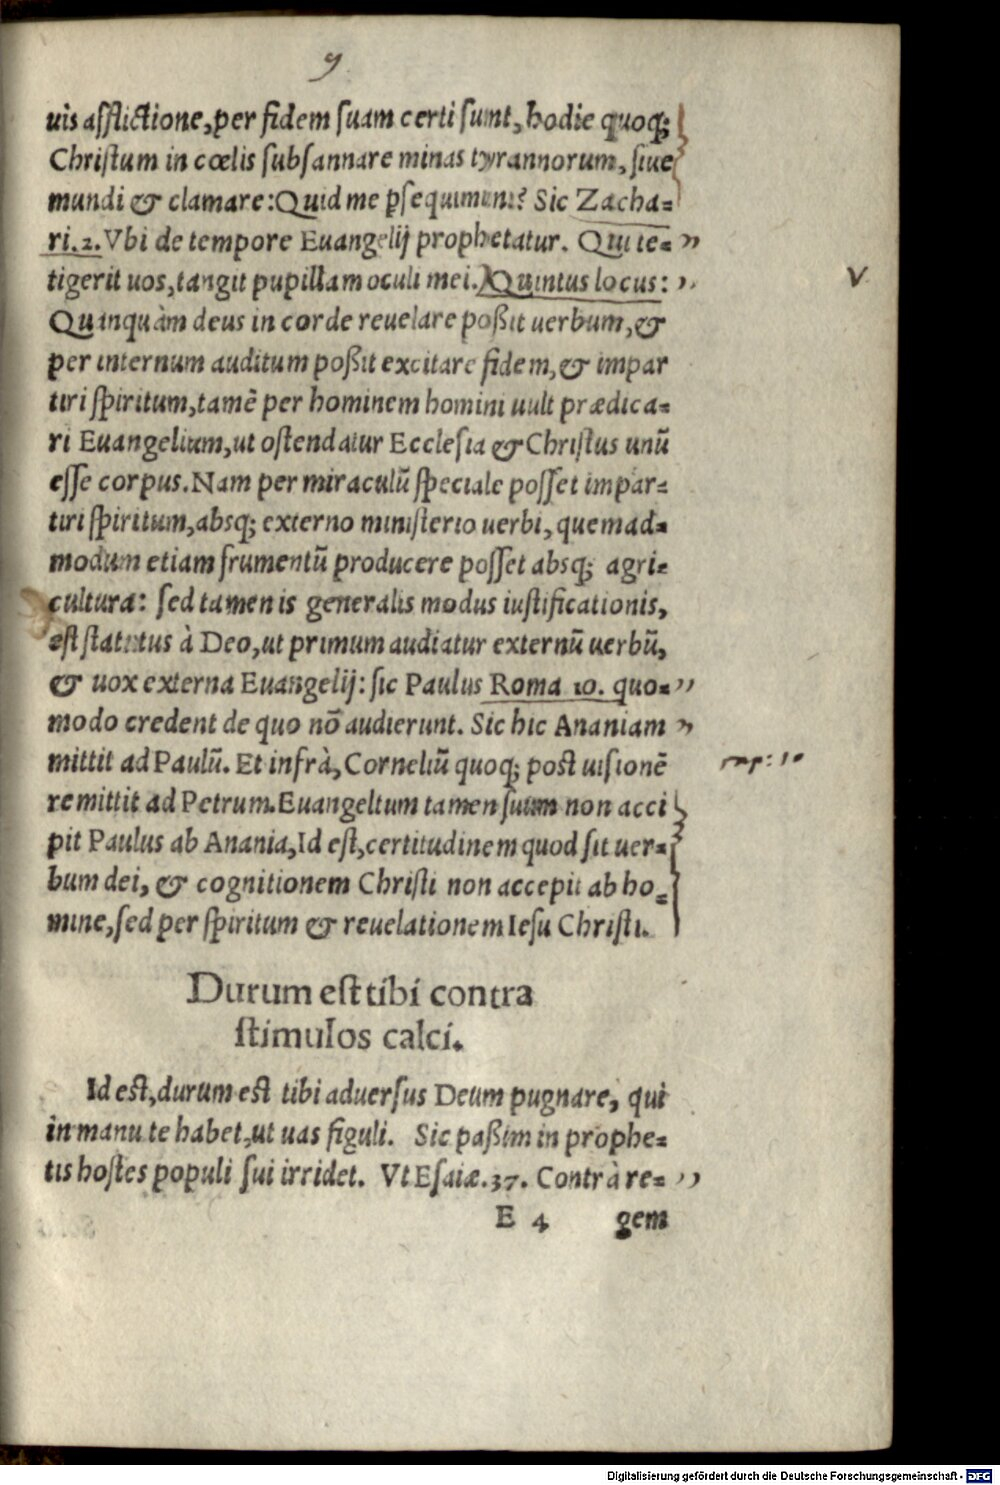 9
uis afflictione, per fidem suam certi sunt, hodie quoq;
Christum in cœlis subsannare minas tyrannorum, siue
mundi & clamare: Quid me psequimini? Sic Zacha=
ri. 2. Vbi de tempore Euangelij prophetatur. Qui te= ”
tigerit uos, tangit pupillam oculi mei. Quintus locus: ”
V
Quanquàm deus in corde reuelare poßit uerbum, &
per internum auditum poßit excitare fidem, & impar
tiri spiritum, tamē per hominem homini uult prædica=
ri Euangelium, ut ostendatur Ecclesia & Christus unū
esse corpus. Nam per miraculū speciale posset impar=
tiri spiritum, absq; externo ministerio uerbi, quemad=
modum etiam frumentū producere posset absq; agri=
cultura: sed tamen is generalis modus iustificationis,
est statutus à Deo, ut primum audiatur externū uerbū,
& uox externa Euangelij: sic Paulus Roma 10. quo= ”
modo credent de quo nō audierunt. Sic hic Ananiam ”
mittit ad Paulū. Et infrà, Corneliū quoq; post uisionē
remittit ad Petrum. Euangelium tamen suum non acci
pit Paulus ab Anania, Id est, certitudinem quod sit uer=
bum dei, & cognitionem Christi non accepit ab ho=
mine, sed per spiritum & reuelationem Iesu Christi.
Durum est tibi contra
stimulos calci.
Id est, durum est tibi aduersus Deum pugnare, qui
in manu te habet, ut uas figuli. Sic paßim in prophe=
tis hostes populi sui irridet. Vt Esaiæ. 37. Contrà re= ”
E 4 gem
Digitalisierung gefördert durch die Deutsche Forschungsgemeinschaft - DFG